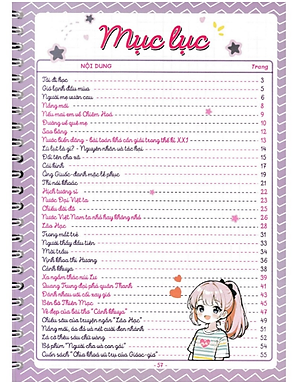 Mục lục
NỘI DUNG Trang
Tôi đi học 3
Gió lạnh đầu mùa 5
Người mẹ vườn cau 6
Nắng mới 8
Nếu mai em về Chiêm Hoá 9
Đường về quê mẹ 10
Sao băng 12
Nước biển dâng - bài toán khó cần giải trong thế kỉ XXI 13
Lũ lụt là gì? - Nguyên nhân và tác hại 14
Đổi tên cho xã 15
Cái kính 17
Ông Giuốc-đanh mặc lễ phục 19
Thi nói khoác 21
Hịch tướng sĩ 22
Nước Đại Việt ta 23
Chiếu dời đô 25
Nước Việt Nam ta nhỏ hay không nhỏ 26
Lão Hạc 27
Trong mắt trẻ 31
Người thầy đầu tiên 33
Mời trầu 34
Vịnh khoa thi Hương 36
Cảnh khuya 38
Xa ngắm thác núi Lư 39
Quang Trung đại phá quân Thanh 41
Đánh nhau với cối xay gió 43
Bến bờ Thiên Mạc
Vẻ đẹp của bài thơ "Cảnh khuya"
Chiều sâu của truyện ngắn "Lão Hạc"
Nắng mới, áo đỏ và nét cười đen nhánh
Lá cờ thêu sáu chữ vàng
Bộ phim "Người cha và con gái" 54
Cuốn sách "Chìa khoá vũ trụ của Giooc-giơ" 55
- 57 -